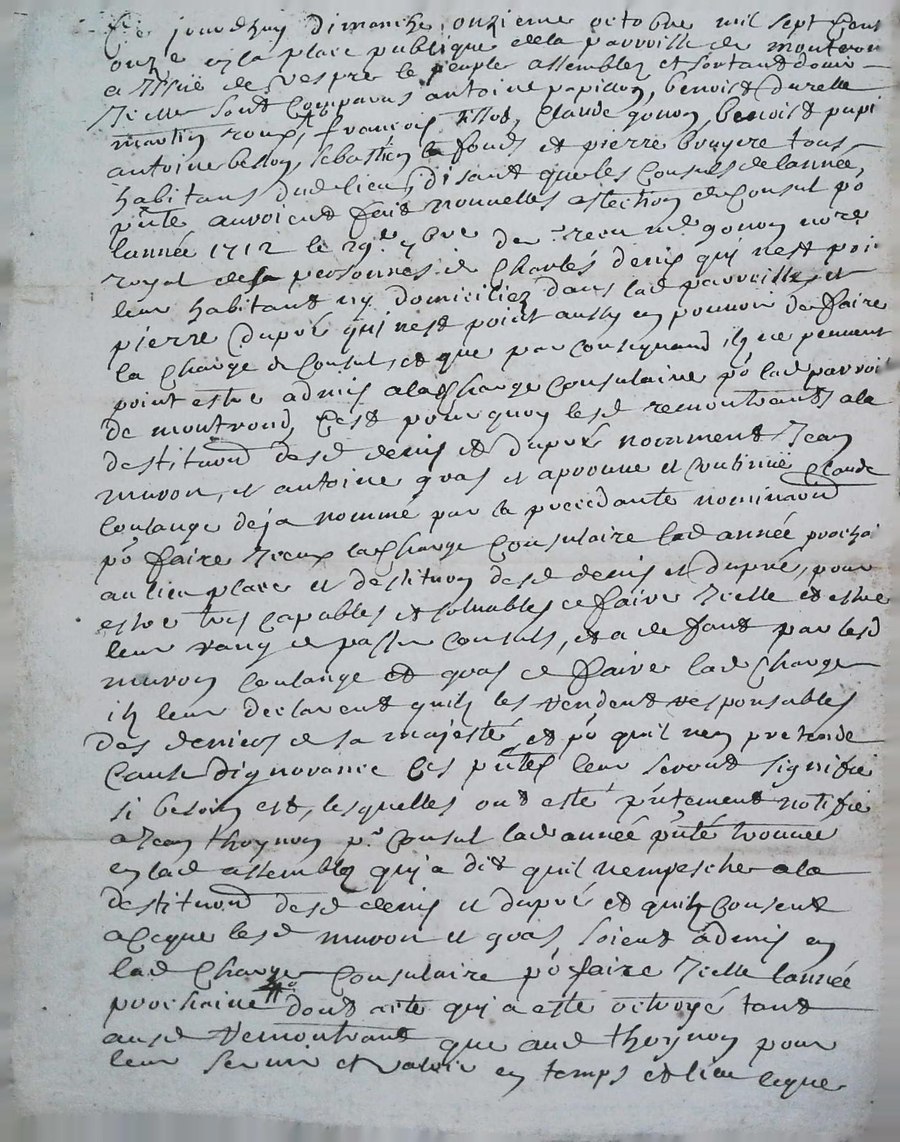 Ce jourdhuy dimanche onzieme octobre mil sept cent
onze en la place publique de la parroisse de montron
a lissüe de vespre le peuple assemblez et sortant
Icelle sont comparus antoine papillon, benoist durelle
martin roux, francois claude gonon, benoist papi
antoine bellon, sebastien la fond et pierre bruyere tous
habitans dud lieu, disant que les Consuls de lannée
pnte auroient fait nouvelles de Consul po
lannée 1712 le 29e 7bre der receu me gonon nore
royal de personnes de Charles denis qui nest poi
leur habitant ny domiciliez dans lad parroisse et
pierre dupré qui nest point aussy en pouvoir de faire
la Charge de Consul, et que par consequand ils ne peuvent
point estre admis a lad Charge Consulaire po lad parroi
de montrond, Cest pourquoy lesd remontrants a la
destituon desd denis et dupré nomment Jean
muron, et antoine gras et aprouve et continüe Claude
Coulange deja nommé par la precedante nominaon
po faire Iceux la Charge Consulaire lad année procha
au lieu place et destituon desd denis et dupré, pour
estre tres capables et solvables de faire Icelle et estre
leur rang de passer consuls, et a de faut par lesd
muron Coulange et gras de faire lad Charge
ils leur declarent quils les rendent responsables
des deniers de sa majesté et po quil nen pretende
Cause dignorance Ces pntes leur seront signifie
si besoin est, lesquelles ont esté pntement notifie
a Jean thoynon pr Consul lad année pnte trouvée
en lad assemblez qui a dit quil nempesche a la
destituon desd denis et dupré et quil consent
a ce que lesd muron et gras soient admis en
lad Charge Consulaire po faire Icelle lannée
prochaine dont acte qui a esté octroyé tant
ausd remontrant que aud thoynon pour
leur servir et valoir en temps et lieu leque